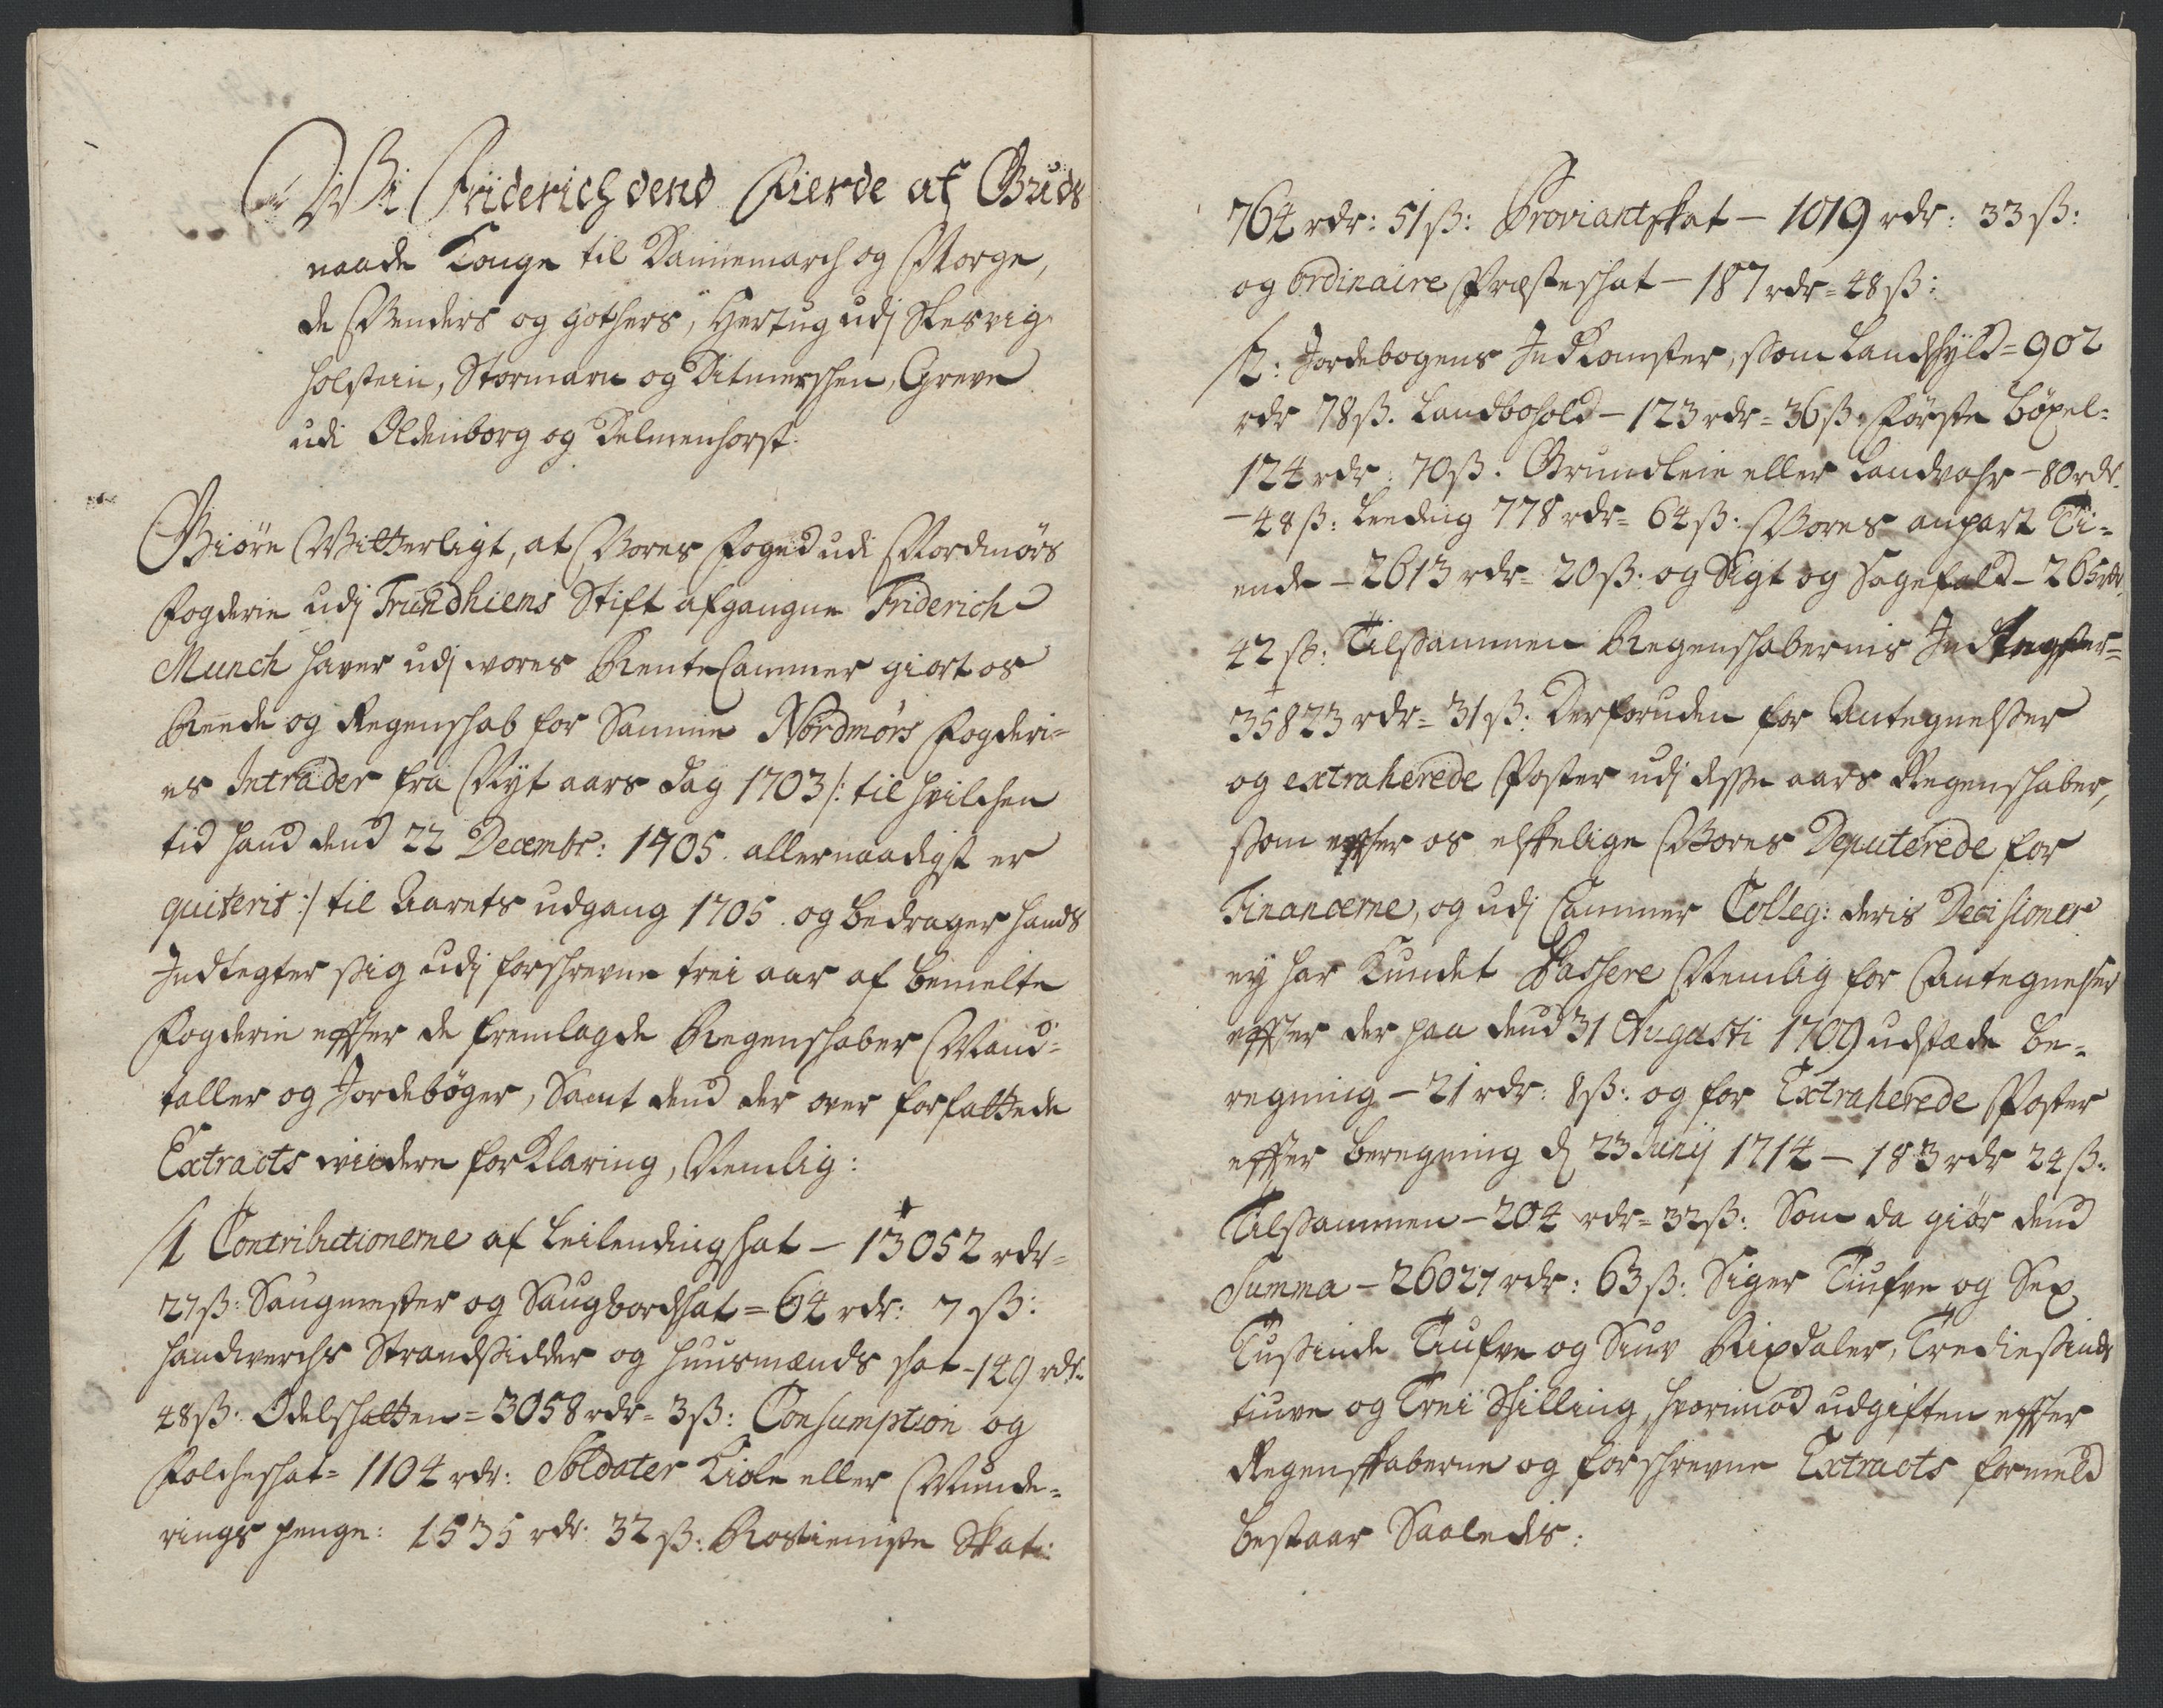 Wi Friderich dend Fierde af Guds
naade Konge til Dannemarch og Norge,
de Wenders og Gothers, Hertug udj Slesvig
Holstein, Stormarn og Ditmerschen, Greve
udi Oldenborg og Delmenhorst.
Giöre Witterligt, at Vores Foged udi Nordmörs
Fogderie udj Trundhiems Stift afgangne Friderich
Munch haver udj vores Rente Cammer giort os
Reede og Regenschab for Samme Nordmörs Fogderi-
es Intrader fra Nyt aars dag 1703 /: til hvilchen
tid hand dend 22 Decembr: 1705. allernaadigst er
quiterit :/ til Aarets udgang 1705. og bedrager hands
Indtegter sig udj forschrevne trei aar af bemelte
Fogderie effter de fremlagde Regenschaber Mand-
taller og Jordeböger, Samt dend der over forfattede
Extracts viidere forklaring, Nemlig:
/1 Contributionerne af Leilendingschat - 13052 rdr=
27 ß: Saugmester og Saugbordschat = 64 rdr: 7 ß:
Handverchs Strandsidder og Huusmænds schat - 149 rdr=
48 ß: Odelschatten = 3058 rdr= 3 ß: Consumption og
Folcheschat = 1104 rdr: Soldater Kiole eller Munde=
rings penge: 1535 rdr: 32 ß: Rostieniste Skat:
764 rdr: 51 ß: Proviantskat - 1019 rdr: 33 ß:
og ordinaire Præsteschat - 187 rdr= 48 ß:
/2: Jordebogens Indkomster, som Landschyld = 902
rdr 78 ß. Landbohold - 123 rdr= 36 ß. Förste böxel=
124 rdr: 70 ß: Grundleie eller Landvahr - 80 rdr.
- 48 ß: Leeding 778 rdr= 64 ß: Vores anpart Ti-
ende - 2613 rdr= 20 ß: og Sigt og Sagefald - 265 rdr
42 ß: Tilsammen Regenschabernis Indtegter=
35823 rdr= 31 ß: Derforuden for Antegnelser
og extraherede Poster udj disse aars Regenschaber,
som effter os elskelige Vores Deputerede for
Financerne, og udj Cammer Colleg: deris Decisioner
ej har kundet Passere Nemlig for Antegnelser
effter der paa dend 31 Augusti 1709 udstæde be-
regning - 21 rdr: 8 ß: og for Extraherede Poster
effter beregning d 23 Junij 1714 - 183 rdr 24 ß:
Tilsammen - 204 rdr= 32 ß: Som da giör dend
Summa - 26027 rdr: 63 ß: Siger Tiufve og Sex
Tusinde Tiufve og Siuv Rixdaler, Trediesinds
tiuve og Trei Skilling, hvorimod udgiften effter
Regenskaberne og forschrevne Extracts formeld
bestaar Saaledis: